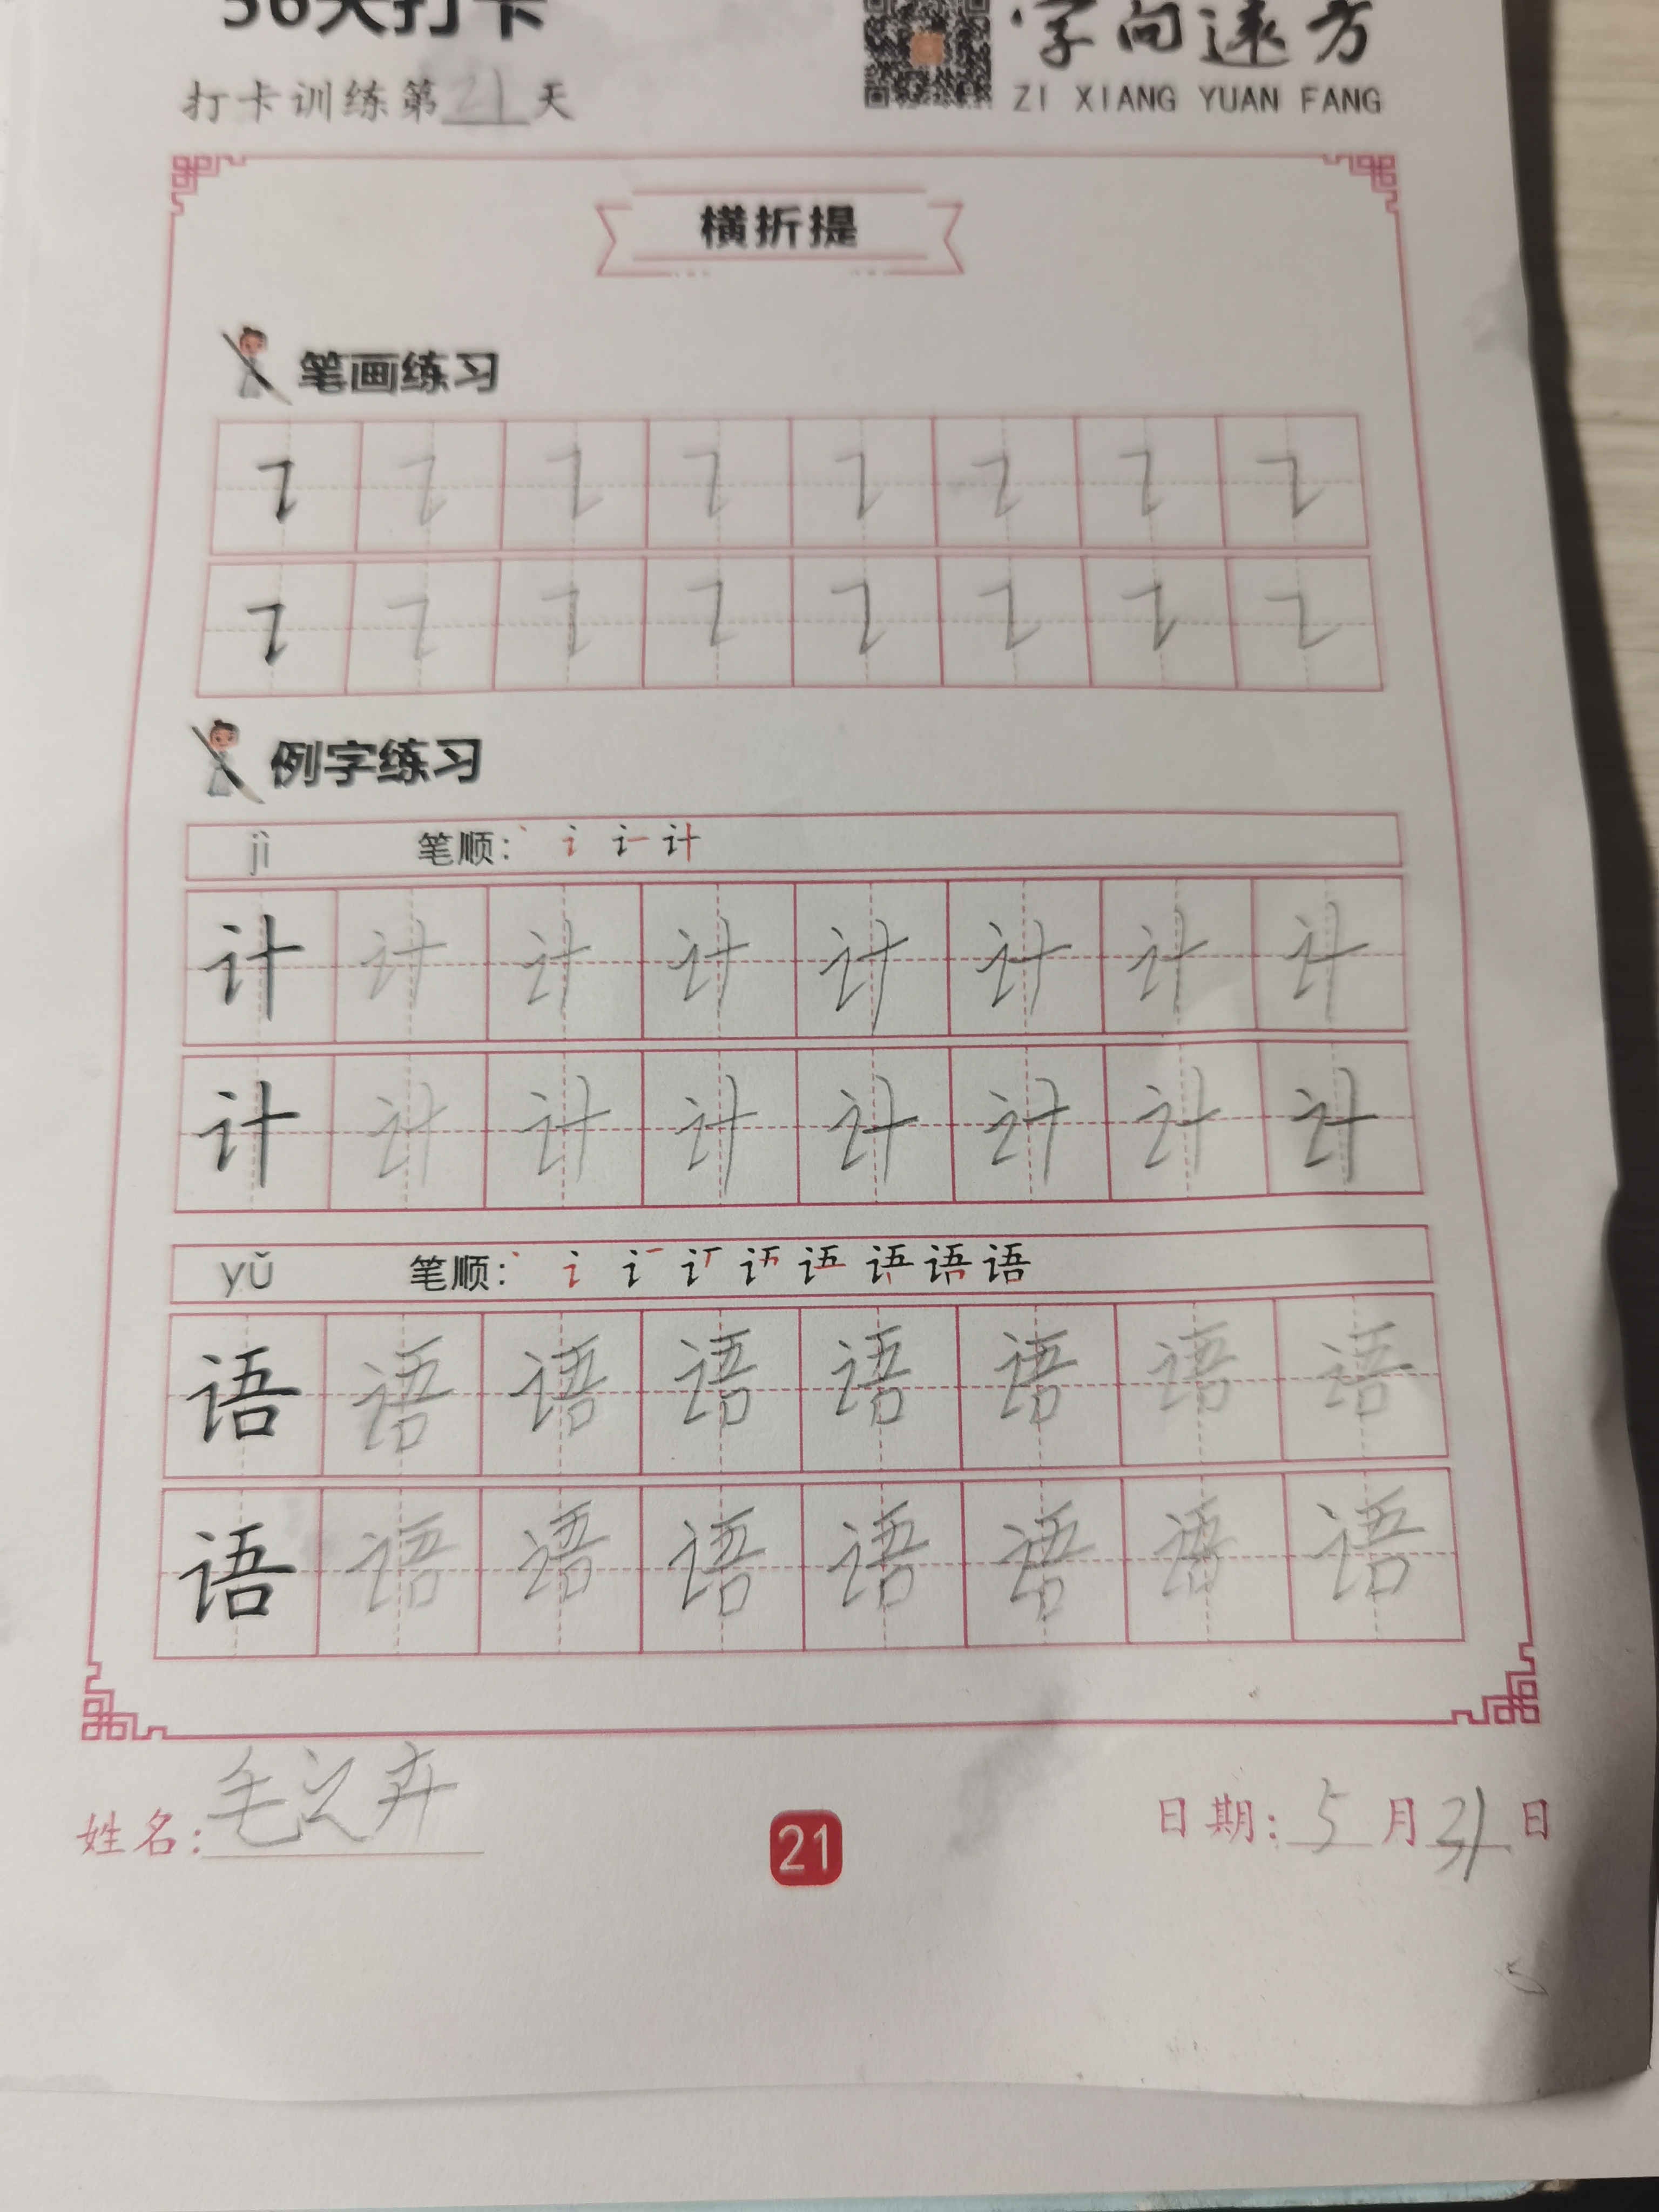 36天打卡
字向远方
打卡训练第21天
ZI XIANG YUAN FANG
横折提
笔画练习
㇊ ㇊ ㇊ ㇊ ㇊ ㇊ ㇊ ㇊
㇊ ㇊ ㇊ ㇊ ㇊ ㇊ ㇊ ㇊
例字练习
jì 笔顺：
计 计 计 计 计 计 计 计
计 计 计 计 计 计 计 计
yǔ 笔顺：
语 语 语 语 语 语 语 语
语 语 语 语 语 语 语 语
姓名：毛之卉
21
日期：5月31日